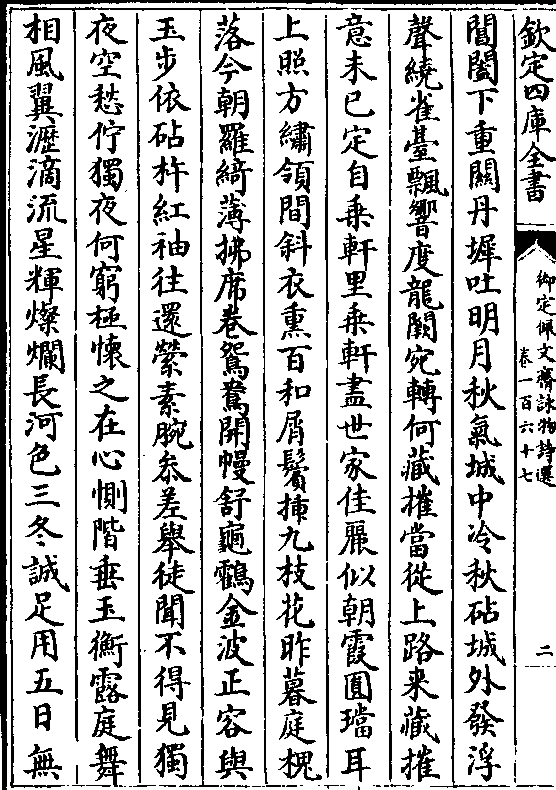 欽定四庫全書
御定佩文齋詠物詩選
卷一百六十七
二
閶闔下重關丹墀吐明月秋氣城中冷秋砧城外發浮
聲繞雀臺飄響度龍闕宛轉何藏摧當從上路來藏摧
意未已定自乗軒里乗軒盡世家佳麗似朝霞圓璫耳
上照方繡領間斜衣熏百和屑鬢揷九枝花昨暮庭槐
落今朝羅綺薄拂席卷鴛鴦開幔舒龜鶴金波正容與
玉步依砧杵紅袖往還縈素腕叅差舉徒聞不得見獨
夜空愁佇獨夜何窮極懷之在心惻階垂玉衡露庭舞
相風翼瀝滴流星輝燦爛長河色三冬誠足用五日無